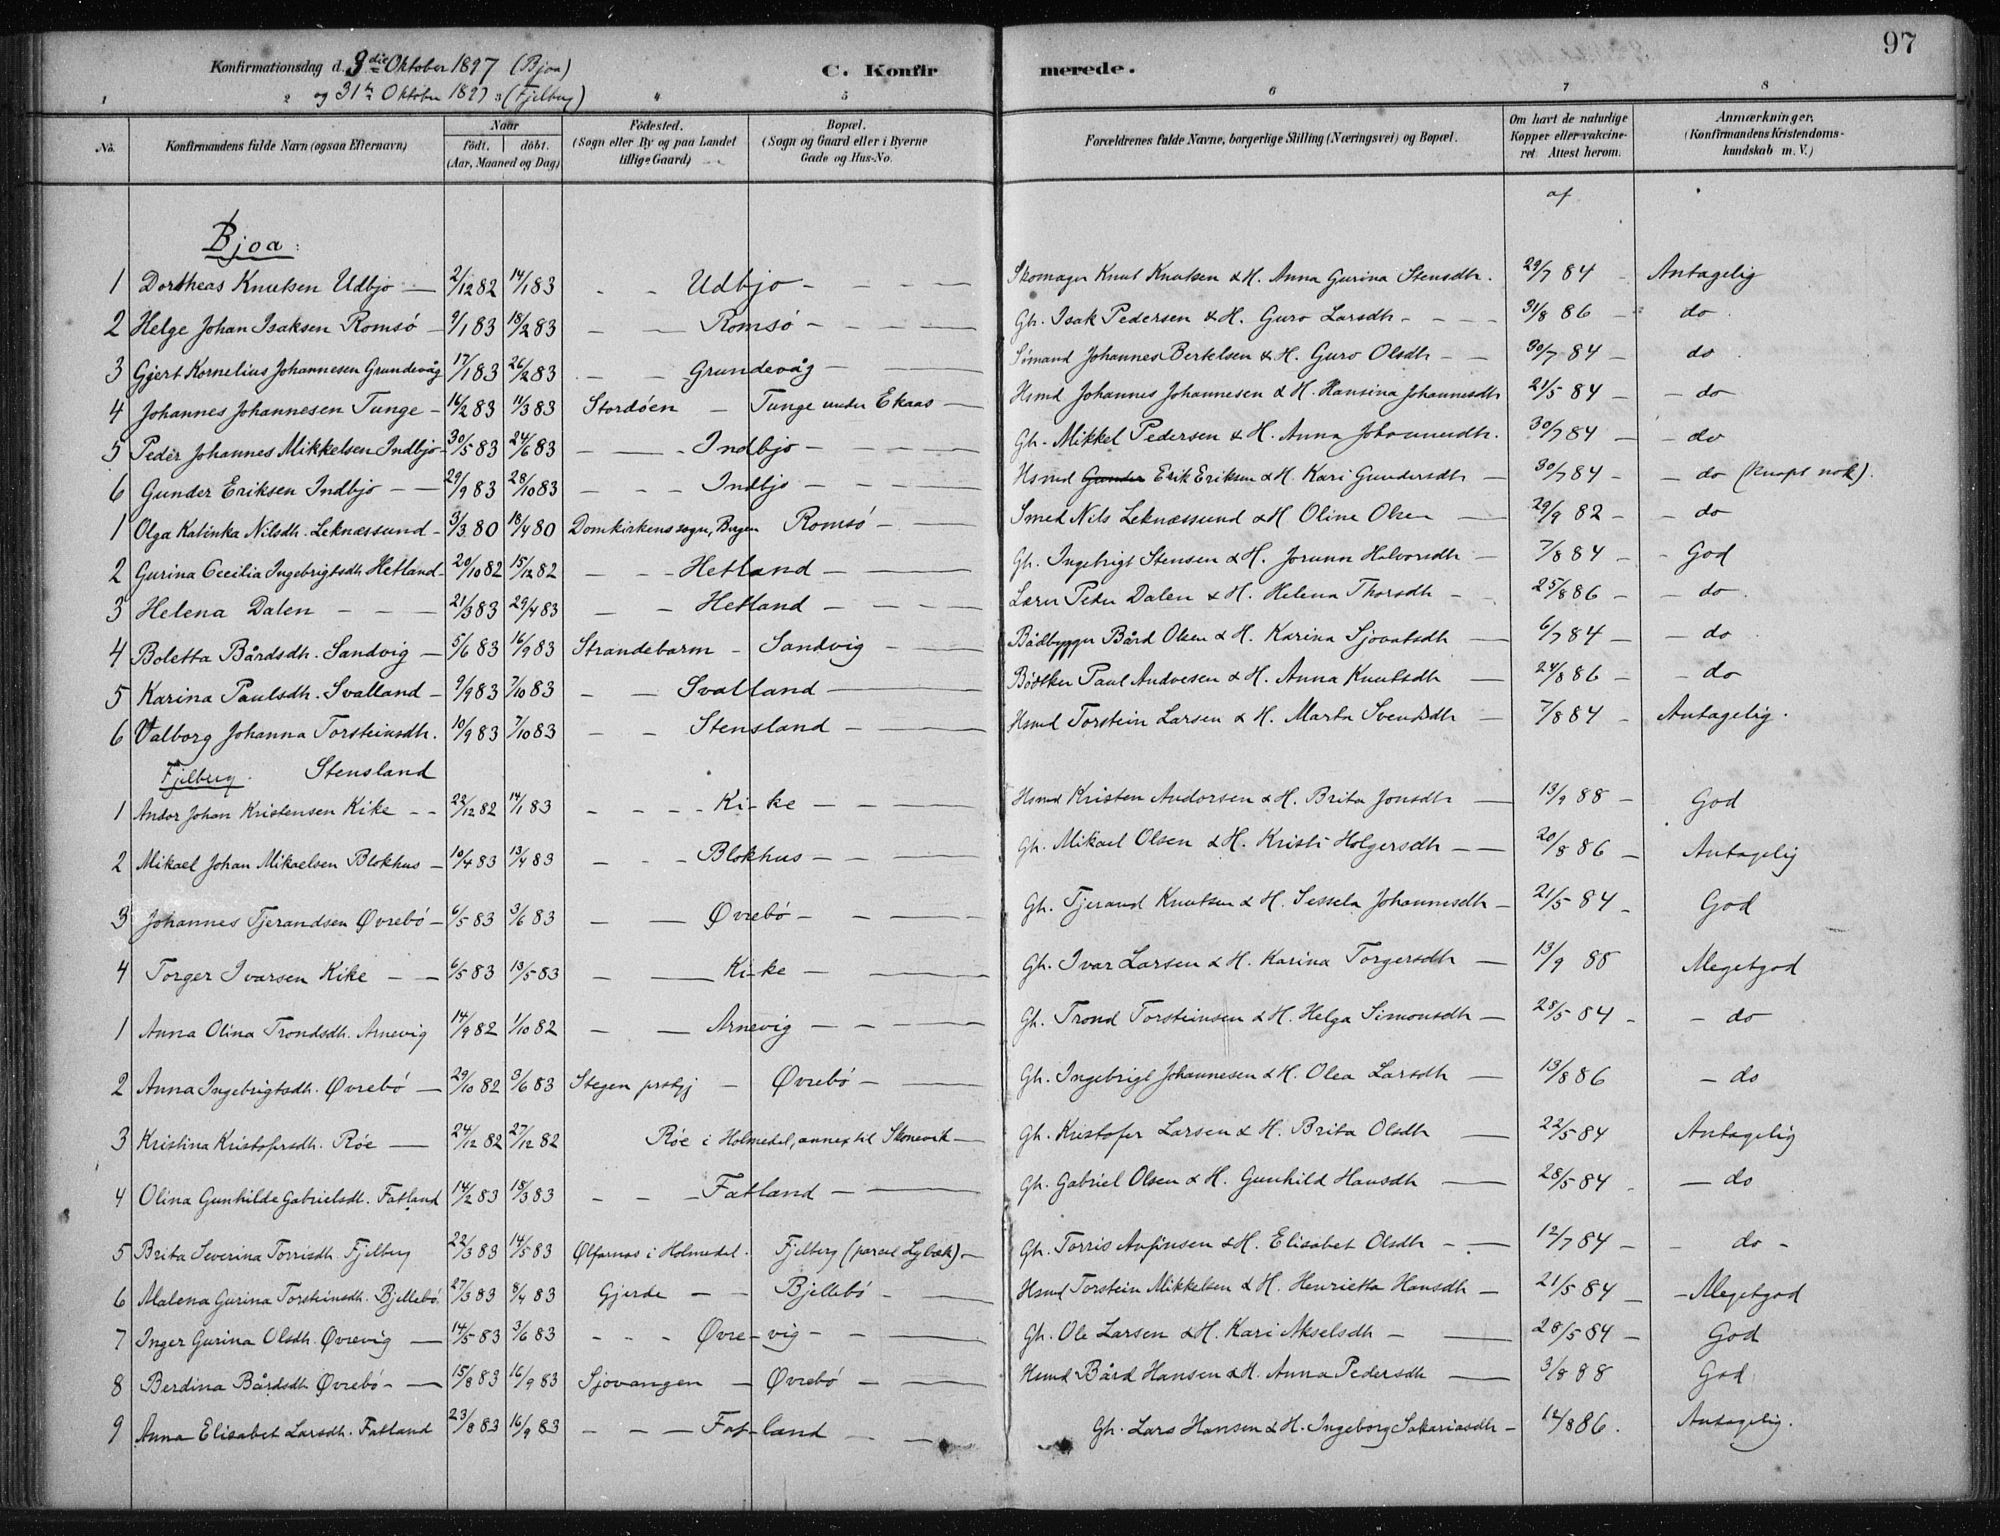 97
Konfirmationsdag d. 3die Oktober 1897 (Bjoa)
og 31te Oktober 1897 (Fjelberg)
C. Konfirmerede.
1 2 3 4 5 6 7 8
No. Konfirmandens fulde Navn (ogsaa Efternavn) Naar født. døbt. (Aar, Maaned og Dag) Fødested. (Sogn eller By og paa Landet tillige Gaard) Bopæl. (Sogn og Gaard eller i Byerne Gade og Hus-No. Forældrenes fulde Navne, borgerlige Stilling (Næringsvei) og Bopæl. Om havt de naturlige Kopper eller vakcineret. Attest herom. Anmærkninger. (Konfirmandens Kristendomskundskab m. V.)
af
Bjoa:
1 Dortheas Knutsen Udbjo — 2/12 82 14/1 83 - - Udbjo - Skomager Knut Knutsen & H. Anna Gurina Stensdh. 29/7 84 - Antagelig
2 Helge Johan Isaksen Romsö - 9/1 83 18/2 83 - — Romsö - Gb. Isak Pedersen & H. Guro Larsdh - 31/8 86 - do.
3 Gjert Kornelius Johannesen Grundevåg 17/1 83 26/2 83 - - Grundevåg - Sömand Johannes Bertelsen & H. Guro Olsdh - 30/7 84 - do
4 Johannes Johannesen Tunge - 16/2 83 11/3 83 Stordöen - Tunge under Ekaas — Hsmd Johannes Johannesen & H. Hansina Johannesdh 21/5 84 - do
5 Peder Johannes Mikkelsen Indbjo - 30/5 83 24/6 83 - — Indbjo - Gb. Mikkel Pedersen & H. Anna Johannesdh. 30/7 84 — - do
6 Gunder Eriksen Indbjo - 29/9 83 28/10 83 - - Indbjo - Hsmd Gunder Erik Eriksen & H. Kari Gundersdh - 30/7 84 - do (knapt nok).
1 Olga Katinka Nilsdh. Leknæssund - 3/3 80 18/4 80 Domkirkens sogn, Bergen Romsö - Smed Nils Leknæssund & H. Oline Olsen — 29/9 82 - do
2 Gurina Cecilia Ingebrigtsdh Hetland - 20/10 82 15/12 82 - - Hetland - Gb. Ingebrigt Stensen & H. Jorunn Halvorsdh - 7/8 84 - God
3 Helena Dalen - 21/3 83 29/4 83 - - Hetland - Lærer Peder Dalen & H. Helena Thorsdh - 25/8 86 - do.
4 Boletta Bårdsdh. Sandvig — 5/6 83 16/9 83 Strandebarm - Sandvig - Bådbygger Bård Olsen & H. Karina Sjovatsdh — 6/7 84 - do
5 Karina Paulsdh. Svalland - 9/9 83 7/10 83 - — Svalland — Bödker Paul Andvesen & H. Anna Knutsdh — 24/8 86 - do
6 Valborg Johanna Torsteinsdh. Stensland 10/9 83 7/10 83 - - Stensland - Hsmd Torstein Larsen & H. Marta Svendsdh — 7/8 84 - Antagelig.
Fjelberg.
1 Andor Johan Kristensen Kike - 22/12 82 14/1 83 - - - Kike - Hsmd Kristen Andorsen & H. Brita Jonsdh — 13/9 88 - God
2 Mikael Johan Mikaelsen Blokhus - 10/4 83 13/4 83 - - - Blokhus - Gb. Mikael Olsen & H. Kristi Holgersdh - 20/8 86 - Antagelig
3 Johannes Tjerandsen Øvrebö - 6/5 83 3/6 83 - — Øvrebö - Gb. Tjerand Knutsen & H. Sessela Johannesdh - 21/5 84 - God
4 Torger Ivarsen Kike - 6/5 83 13/5 83 - — Kike - Gb. Ivar Larsen & H. Karina Torgersdh — 13/9 88 Megetgod
1 Anna Olina Trondsdh. Arnevig 14/9 82 1/10 82 - — Arnevig - Gb. Trond Torsteinsen & H. Helga Simonsdh - 28/5 84 - do
2 Anna Ingebrigtsdh. Øvrebö - 29/10 82 3/6 83 Stegen prstgj - Øvrebö - Gb. Ingebrigt Johannesen & H. Olea Larsdh — 13/8 86 - do
3 Kristina Kristofersdh. Röe — 24/12 82 27/12 82 Röe i Holmedal, annex til Skonevik - Gb. Kristofer Larsen & H. Brita Olsdh — 22/5 84 Antagelig
4 Olina Gunhilde Gabrielsdh. Fatland 14/2 83 18/3 83 - - - Fatland - Gb. Gabriel Olsen & H. Gunhild Hansdh — 28/5 84 - do
5 Brita Severina Torrisdh. Fjelberg 22/3 83 14/5 83 Ølfarnas i Holmedal. Fjelberg (parcel Lybæk) - Gb. Torris Anfinsen & H. Elisabet Olsdh - 12/7 84 - do -
6 Malena Gurina Torsteinsdh. Bjellebö 27/3 83 8/4 83 Gjerde - Bjellebö - Hsmd Torstein Mikkelsen & H. Henrietta Hansdh - 21/5 84 - Megetgod
7 Inger Gurina Olsdh. Øvrevig — 14/5 83 3/6 83 - - - Øvrevig - Gb. Ole Larsen & H. Kari Akselsdh - 28/5 84 - God
8 Berdina Bårdsdh Øvrebö - 15/8 83 16/9 83 Sjovangen - Øvrebö - Hsmd Bård Hansen & H. Anna Pedersdh — 3/8 88 God
9 Anna Elisabet Larsdh. Fatland 23/8 83 16/9 83 - - - Fatland - Gb. Lars Hansen & H. Ingeborg Sakariasdh - 12/8 86. Antagelig.